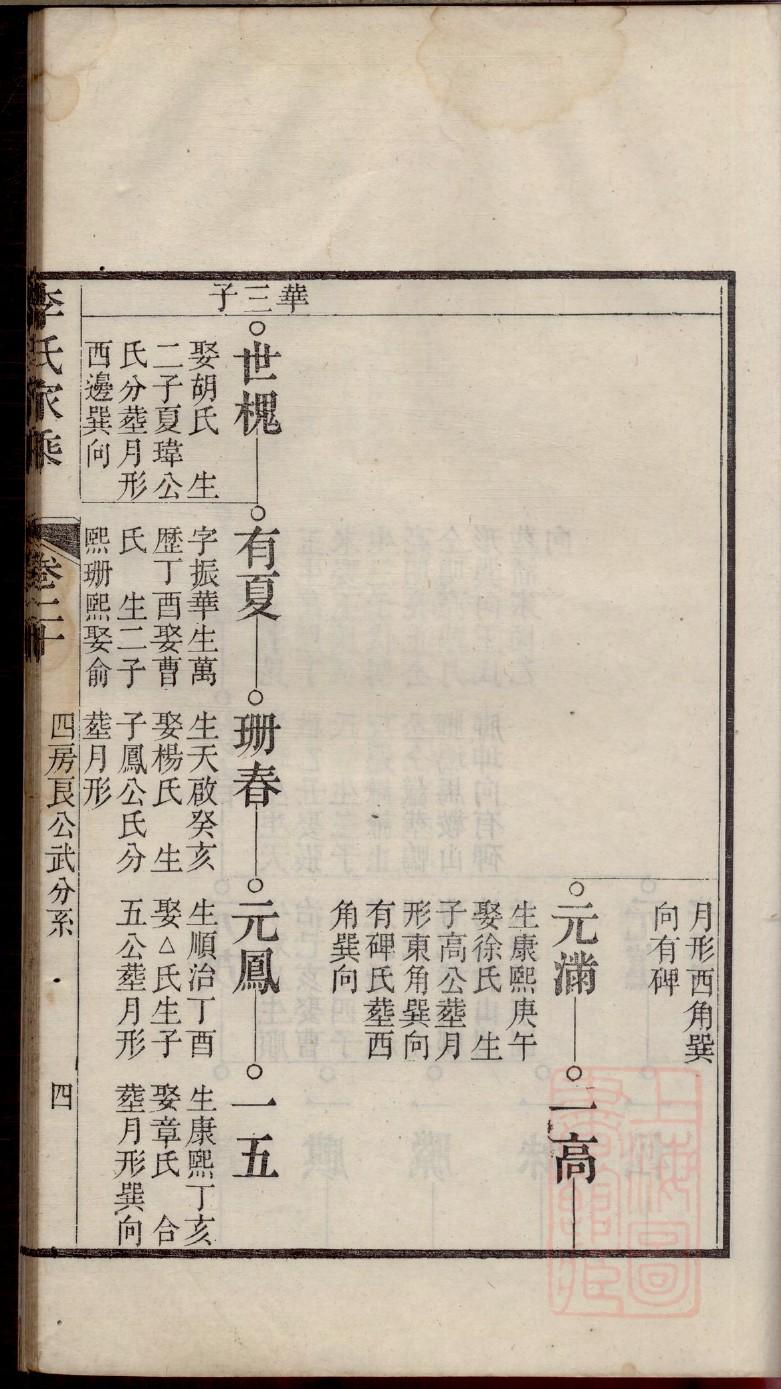 月形西角巽
向有碑
元滿
生康熙庚午
娶徐氏 生
子高公塟月
形東角巽向
有碑氏塟西
角巽向
一高
華三子
世槐
娶胡氏 生
二子夏瑋公
氏分塟月形
西邊巽向
有夏
字振華生萬
歷丁酉娶曹
氏 生二子
熙珊熙娶俞
珊春
生天啟癸亥
娶楊氏 生
子鳳公氏分
塟月形
元鳳
生順治丁酉
娶△氏生子
五公塟月形
一五
生康熙丁亥
娶章氏 合
塟月形巽向
李氏家乘
卷二十
四房良公武分系
四
上海圖書館藏